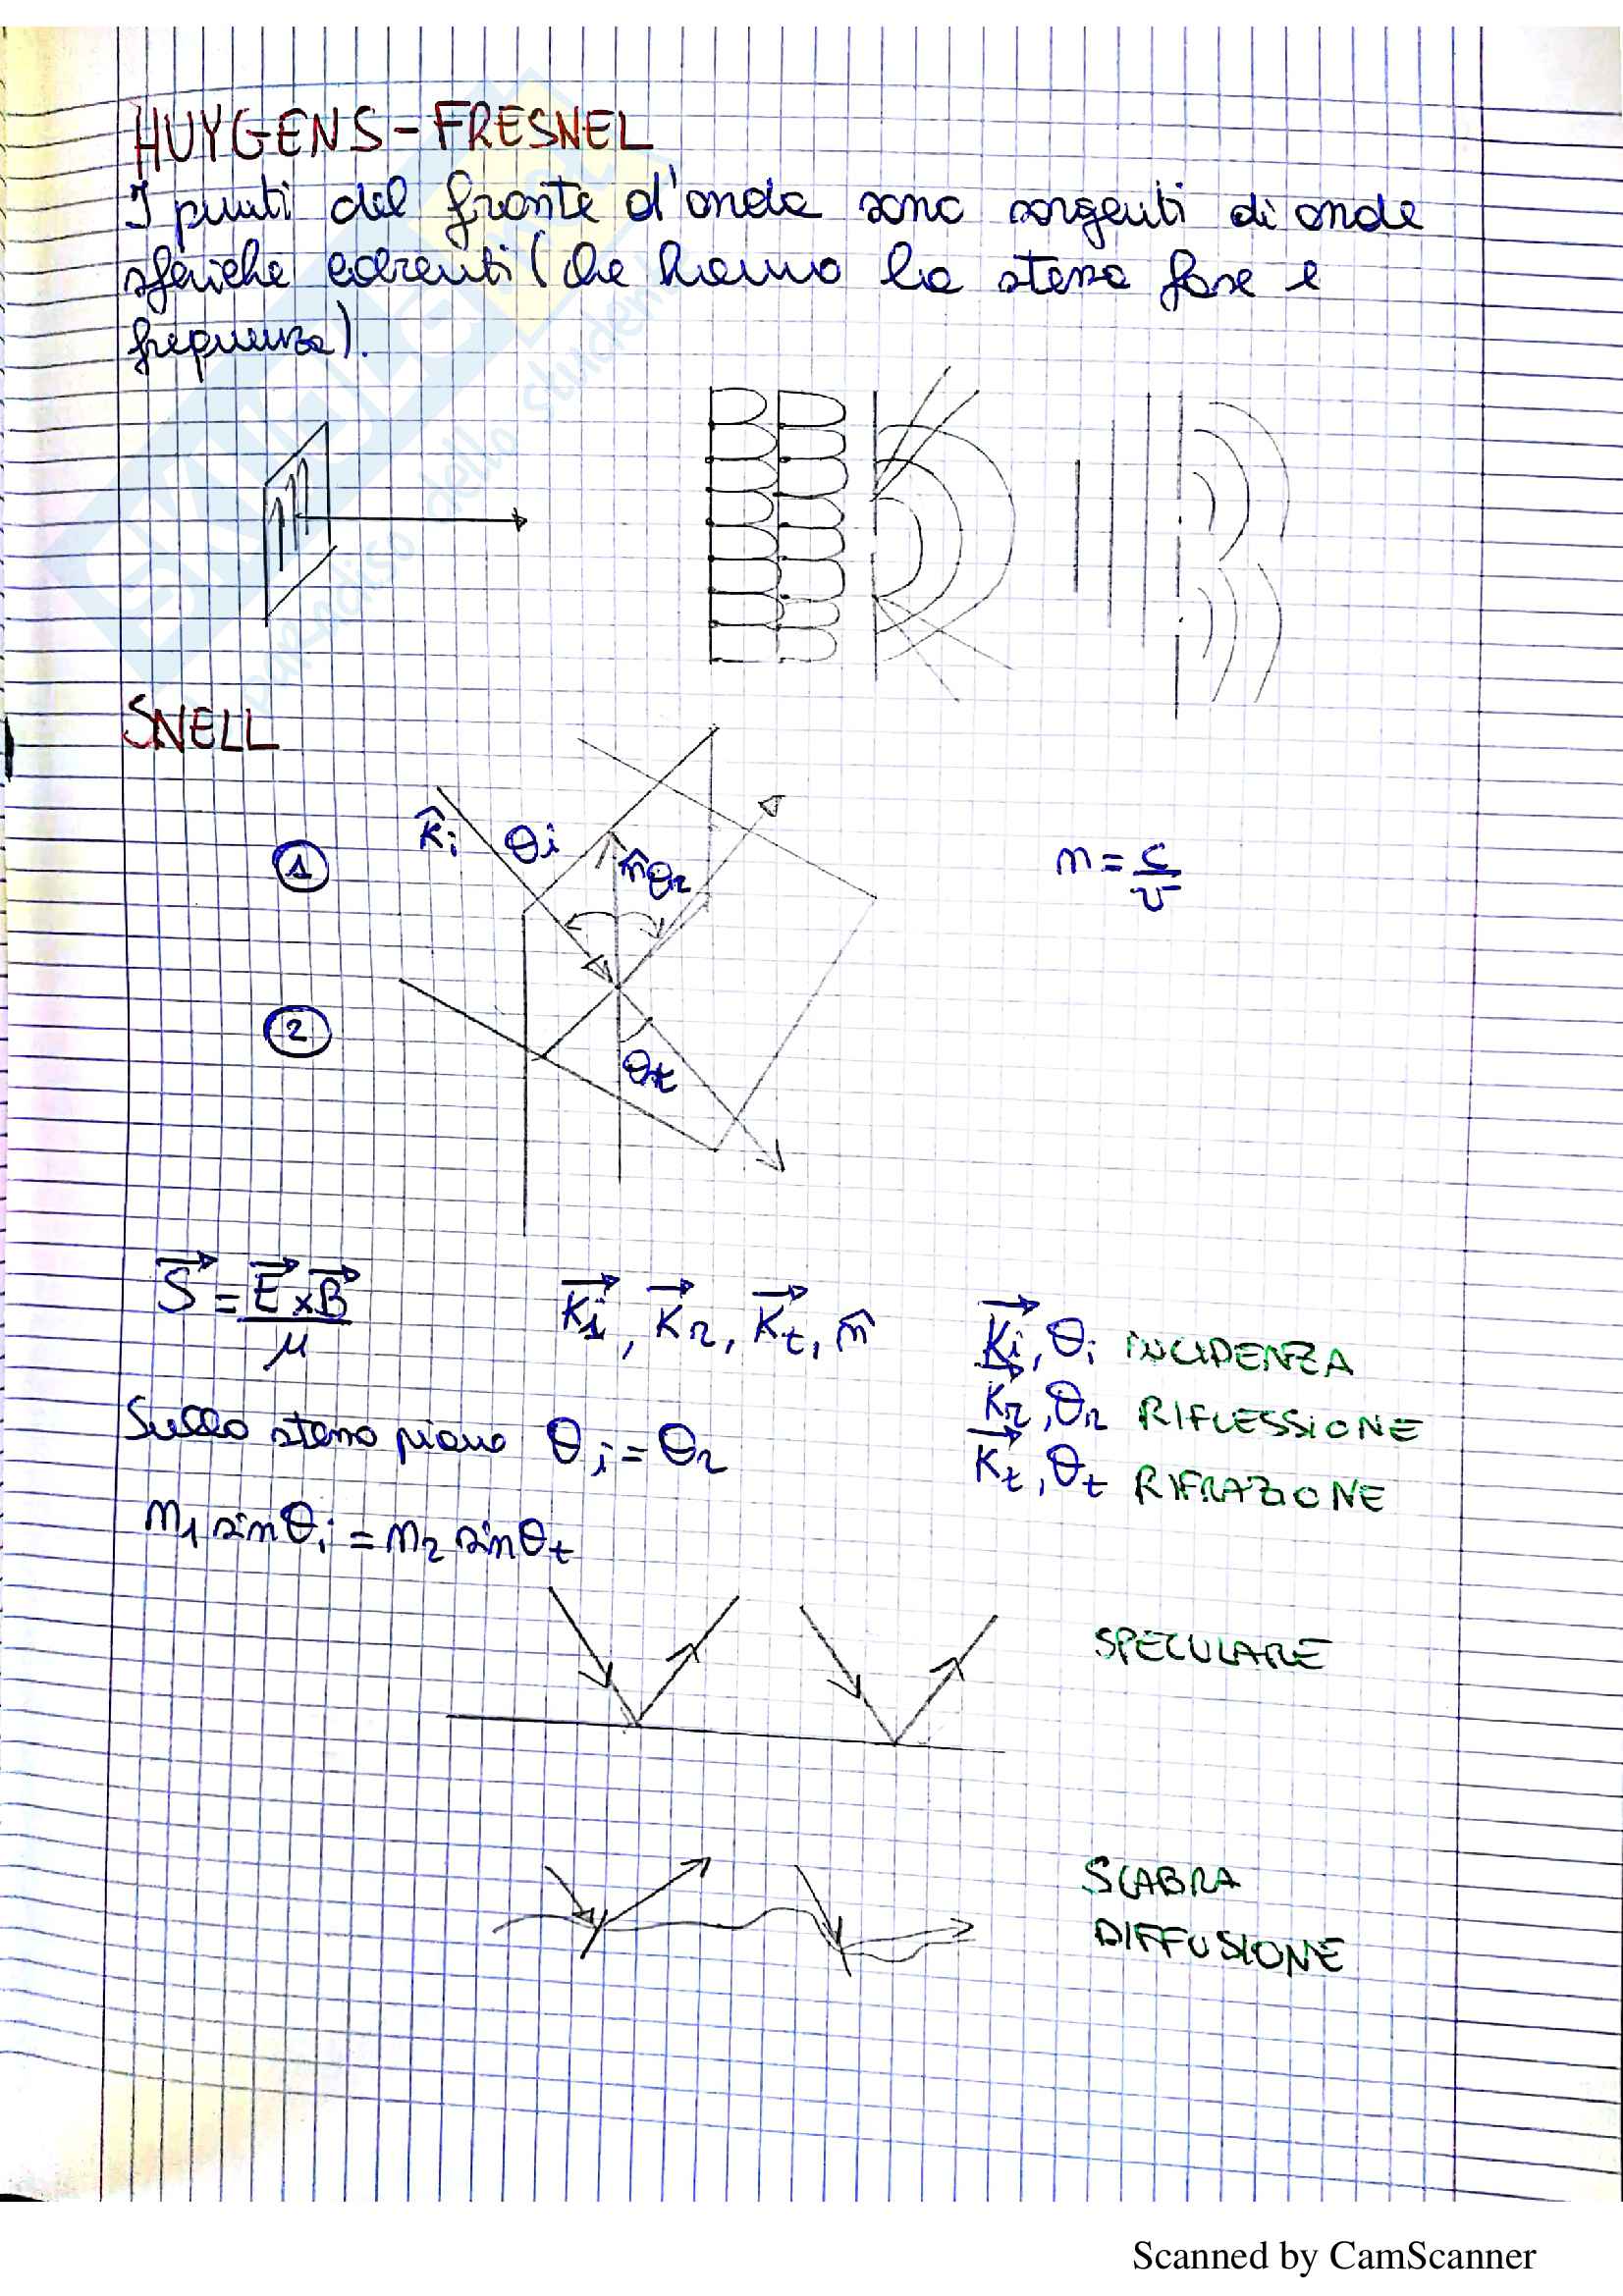 HUYGENS-FRESNEL
I punti del fronte d'onda sono sorgenti di onde
sferiche coerenti (che hanno la stessa fase e
frequenza).
SNELL
k̂i θi n̂ θr
1
n = c/v
2
θt
S⃗ = E⃗ x B⃗ / μ
K⃗i, K⃗r, K⃗t, n̂
K⃗i, θi INCIDENZA
K⃗r, θr RIFLESSIONE
K⃗t, θt RIFRAZIONE
Sullo stesso piano θi = θr
n1 sinθi = n2 sinθt
SPECULARE
SCABRA
DIFFUSIONE
Scanned by CamScanner